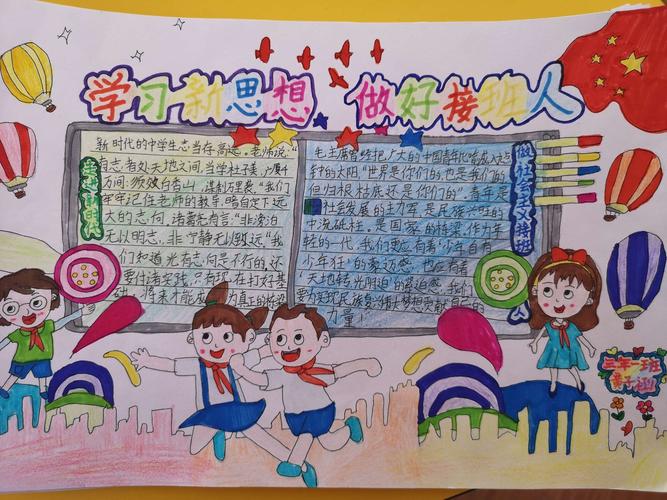 学习新思想 做好接班人
新时代的中学生志当存高远。老师说:
有志者处天地之间,当学杜子美,广厦千
万间
年年记住老师的教导,暗自定下远
大的志向,诸葛先有言:"非淡泊
无以明志,非宁静无以致远"我
们知道光有志向是不行的,还
要付诸实践,只有现在打好基
础,将来才能成为真正的栋梁
毛主席曾经把广大的中国青年比喻成八九点
钟的太阳"世界是你们的,也是我们的
但归根柱底还是你们的"。青年是
社会发展的主力军,是民族兴旺的
中流砥柱。是国家的桥梁,作为年
轻的一代,我们更应有着"少年自有
少年狂"的豪迈感,也应有着
天地转光阴迫的紧迫感,我们
要为实现民族复兴
力量!
做社会主义接班人
三年一班